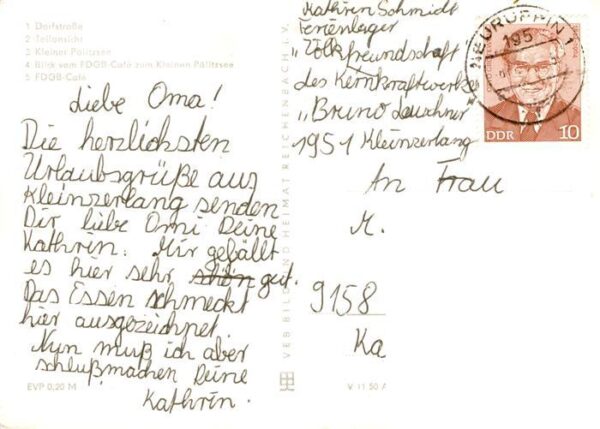 1 Dorfstraße
2 Teilansicht
3 Kleiner Pälitzsee
4 Blick vom FDGB-Café zum Kleinen Pälitzsee
5 FDGB-Café
Liebe Oma!
Die herzlichsten
Urlaubsgrüße aus
Kleinzerlang senden
Dir liebe Omi Deine
Kathrin. Mir gefällt
es hier sehr schön gut.
Das Essen schmeckt
hier ausgezeichnet.
Nun muß ich aber
schlußmachen Deine
Kathrin.
EVP 0,20 M
VEB BILD UND HEIMAT REICHENBACH i. V.
V 11 50 A
Kathren Schmidt
Ferienlager
"Volkfreundschaft
des Kernkraftwerkes
"Bruno Leuschner
1951 Kleinzerlang
An Frau
M.
9158
Ka
NEURUPPIN 1
195
DDR 10